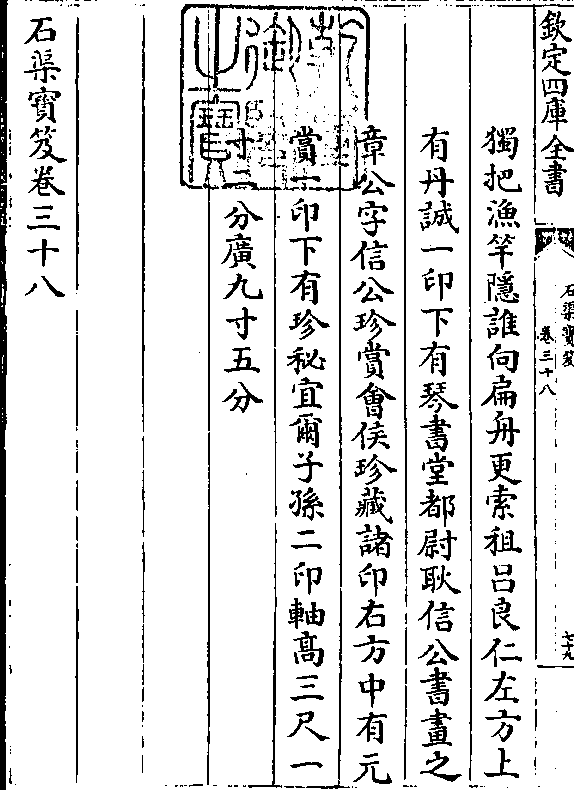 欽定四庫全書
石渠寶笈
卷三十八
七十九
獨把漁竿隱誰向扁舟更索租吕良仁左方上
有丹誠一印下有琴書堂都尉耿信公書畫之
章公字信公珍賞會侯珍藏諸印右方中有元
賞一印下有珍秘宜爾子孫二印軸高三尺一
寸二分廣九寸五分
石渠寶笈卷三十八
乾隆御覽之寶